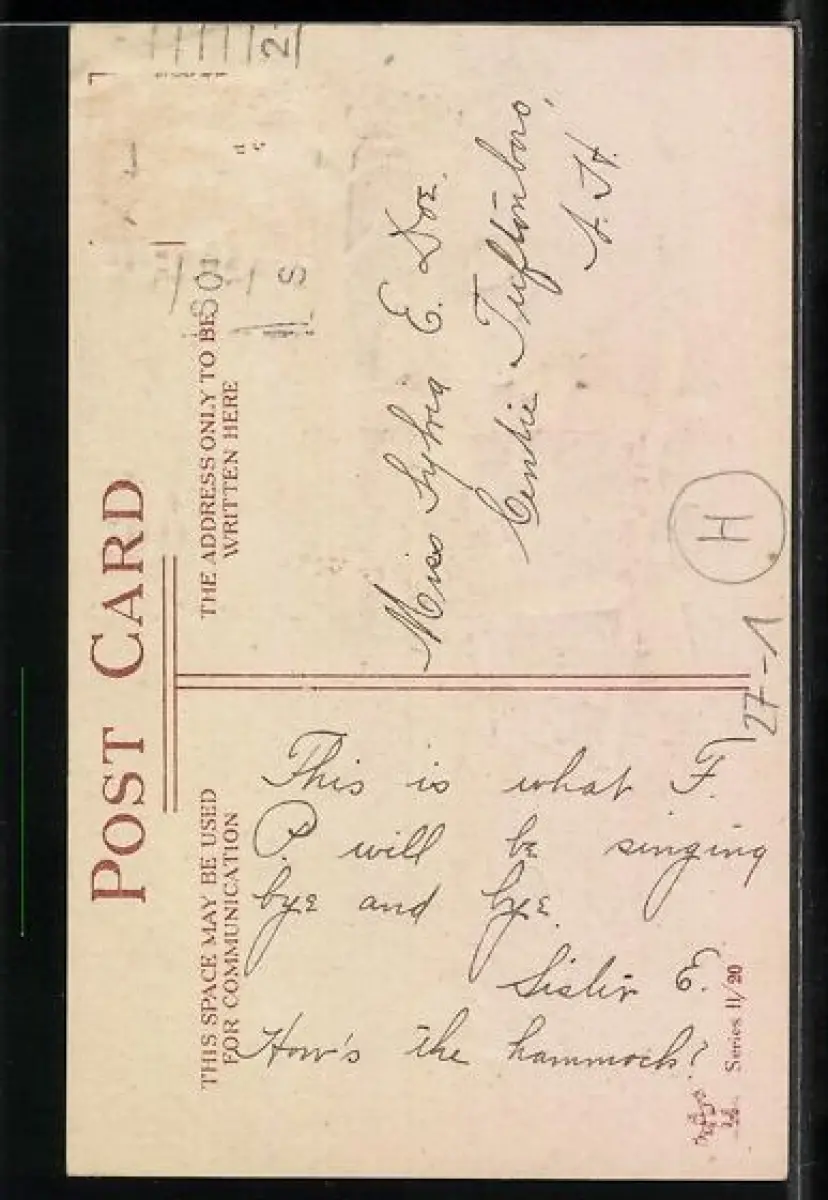 POST CARD
THIS SPACE MAY BE USED
FOR COMMUNICATION
THE ADDRESS ONLY TO BE
WRITTEN HERE
This is what F.
P. will be singing
bye and bye.
Sister E.
How's the hammock?
Miss Sylvia E. Doe.
Centre Tuftonboro,
N. H.
Series 11/20
27-1
H